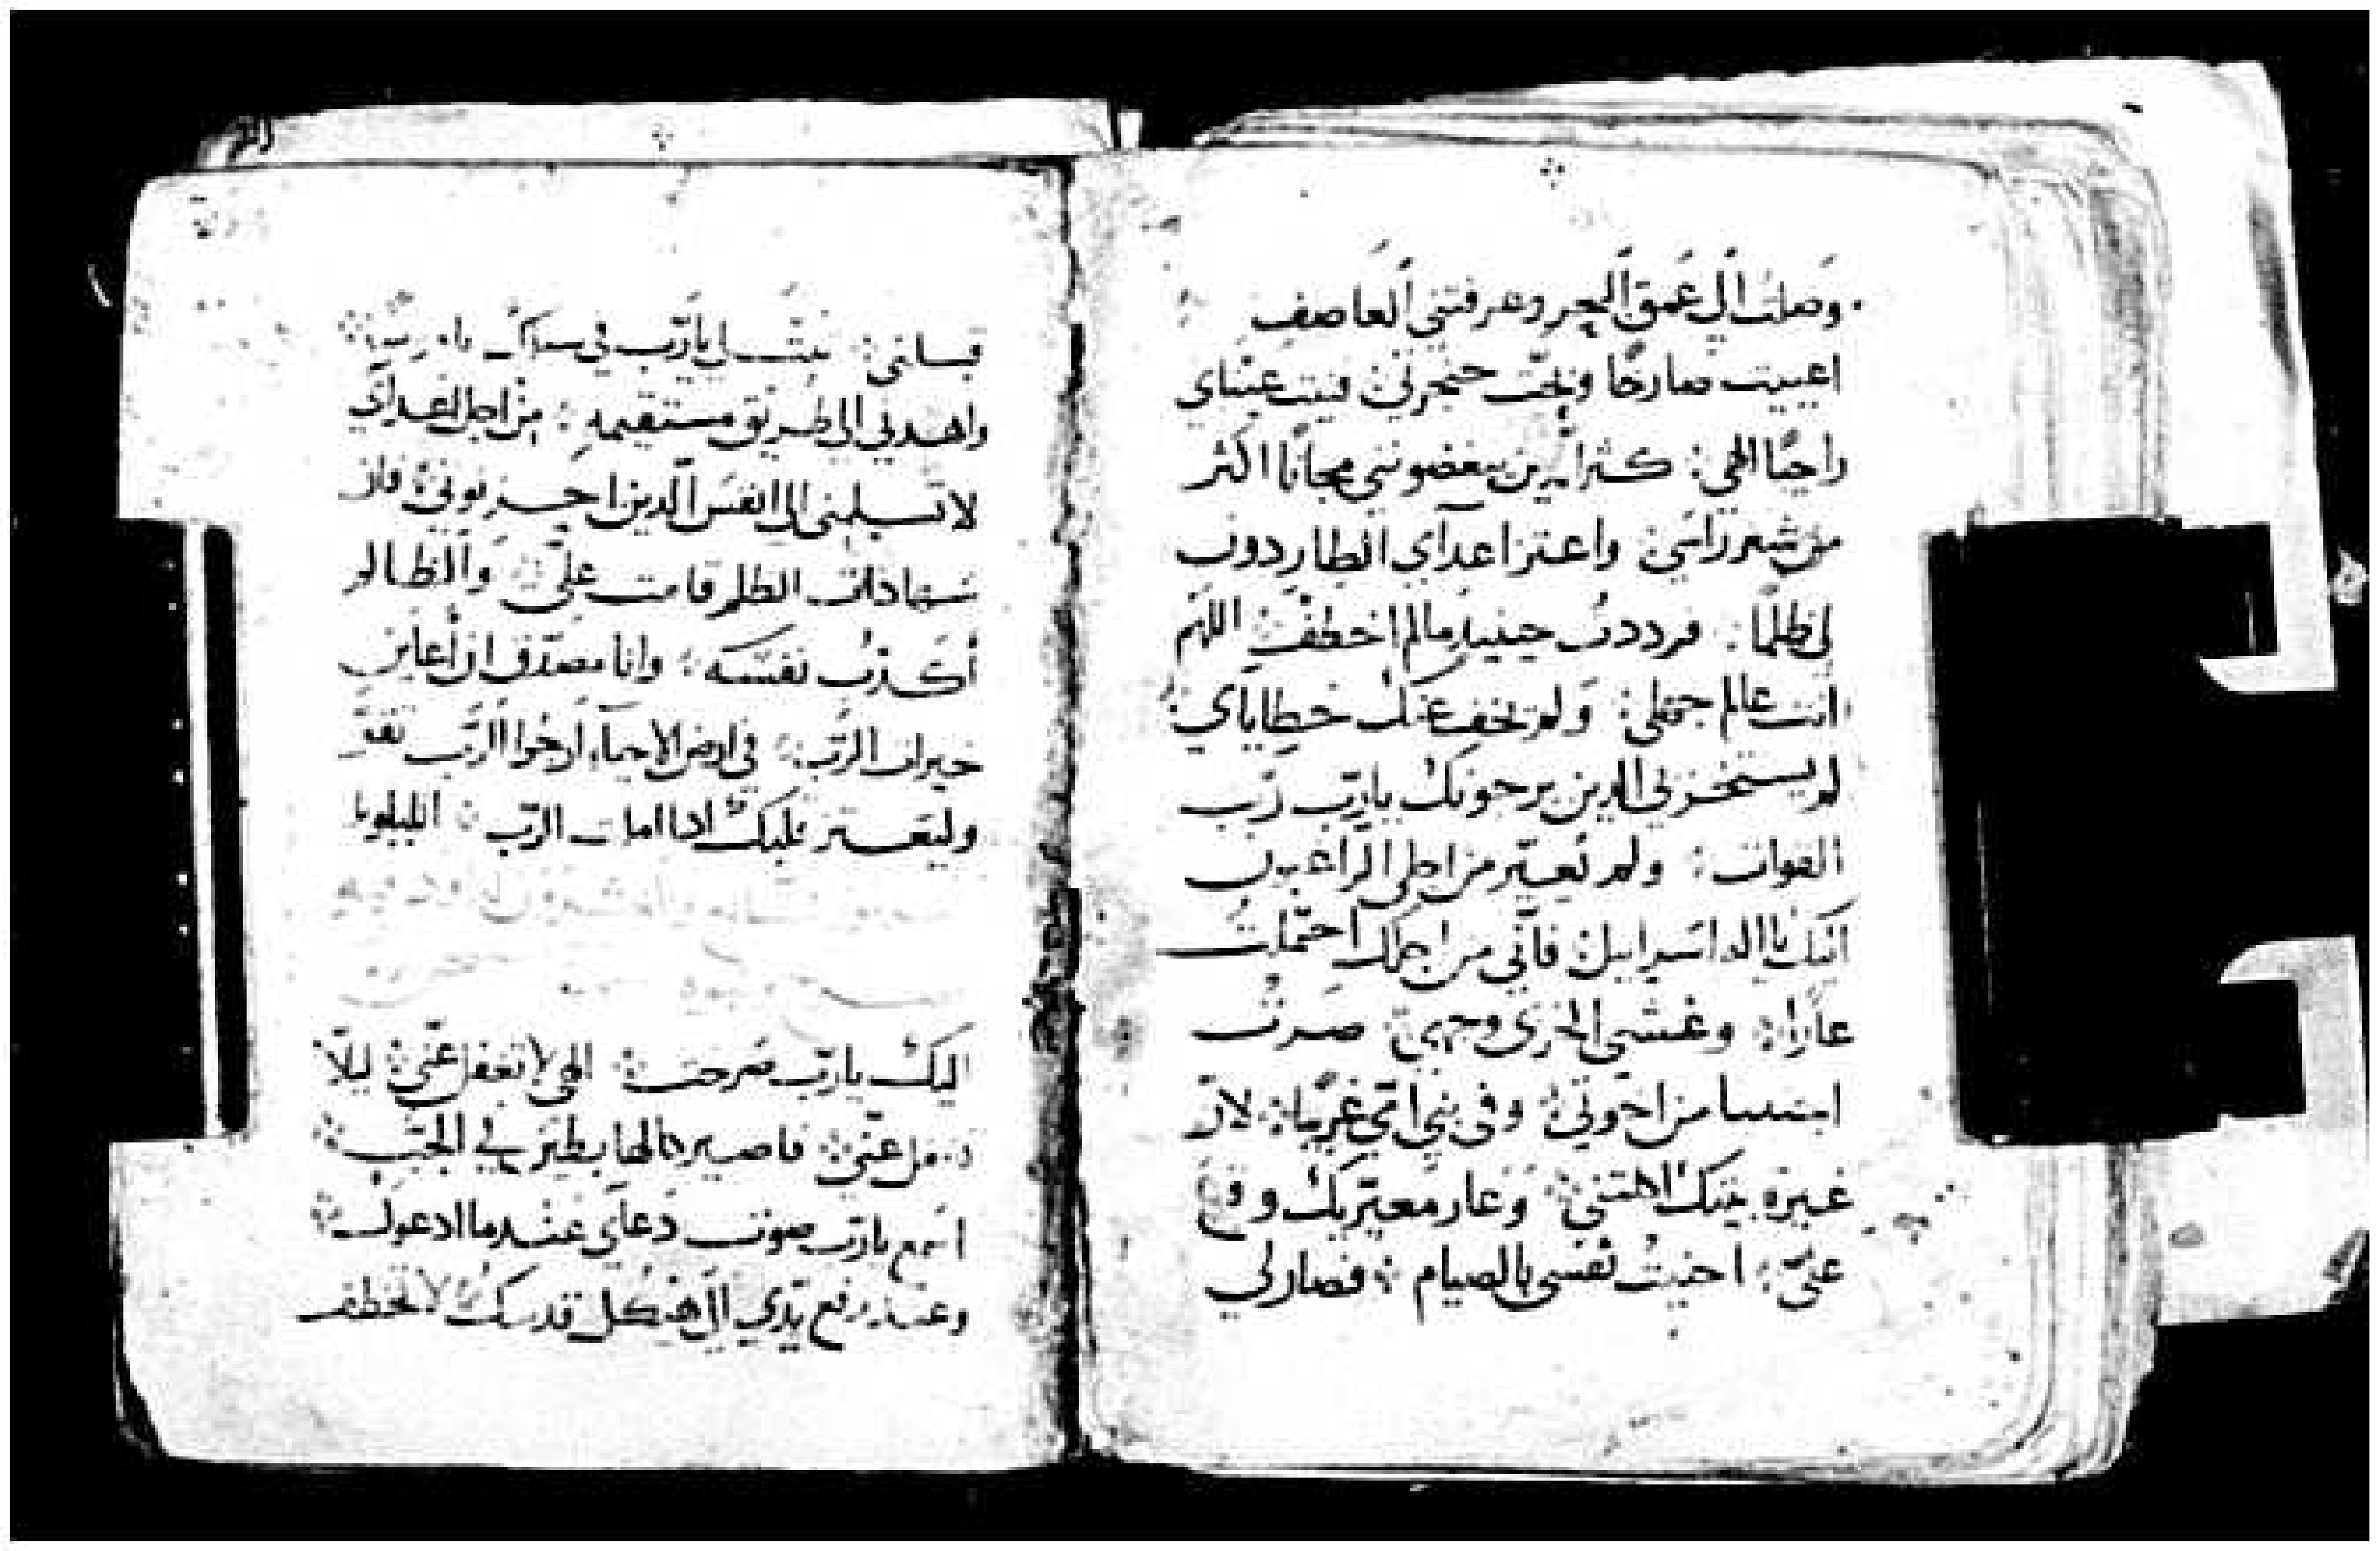 وَصلتُ الي عَمق البحر وغرفتني العاصف
اعييت صارخًا وبحّت حنجرتي فنيت عيناي
راجيًا الهي كثر الذين يبغضونني مجانًا اكثر
من شعر راسي واعتز اعدآي الطاردون
لي ظلمًا فرددتُ حينيذٍ مالم اخطف اللهم
انت عالم جهلي وَلم تخف عنك خطاياي
لم يستخز بي الذين يرجونك يارّب رّب
القوات ولم تعيّر من اجلي الراغبون
اليك يا اله اسَراييل فاني من اجلك احتملت
عارًا وغشي الخزي وجهي صرت
اجنبيا من اخوتي وفي بني امّي غريبًا لانّ
غيرة بيتك اكلتني وَعار معيّريك وقع
عليّ احنيتُ نفسي بالصيام فصار لي
لي يارّب في
واهدني الي طريق مستقيمه من اجل اعدآي
لا تسلمني الي انفسَ الذين احزنوني فان
شهادات الظلم قامت عليّ وَالظالم
أكذبُ نفسَه وانا مصدّق ان أعاين
خيرات الرّب في ارض الاحيآء أرجُوا الرّب تقوّ
وليتعتز قلبك الرّب الليلويا
اليك يارّب صَرختُ الهي لا تغفل عنّي ليلّا
تغفل عنّي فاصير الجُبّ
اسَمع يارّب صوت دَعآي عندما ادعوك
وعند رفع يدّي الي هيكل قدسك لا تخطف